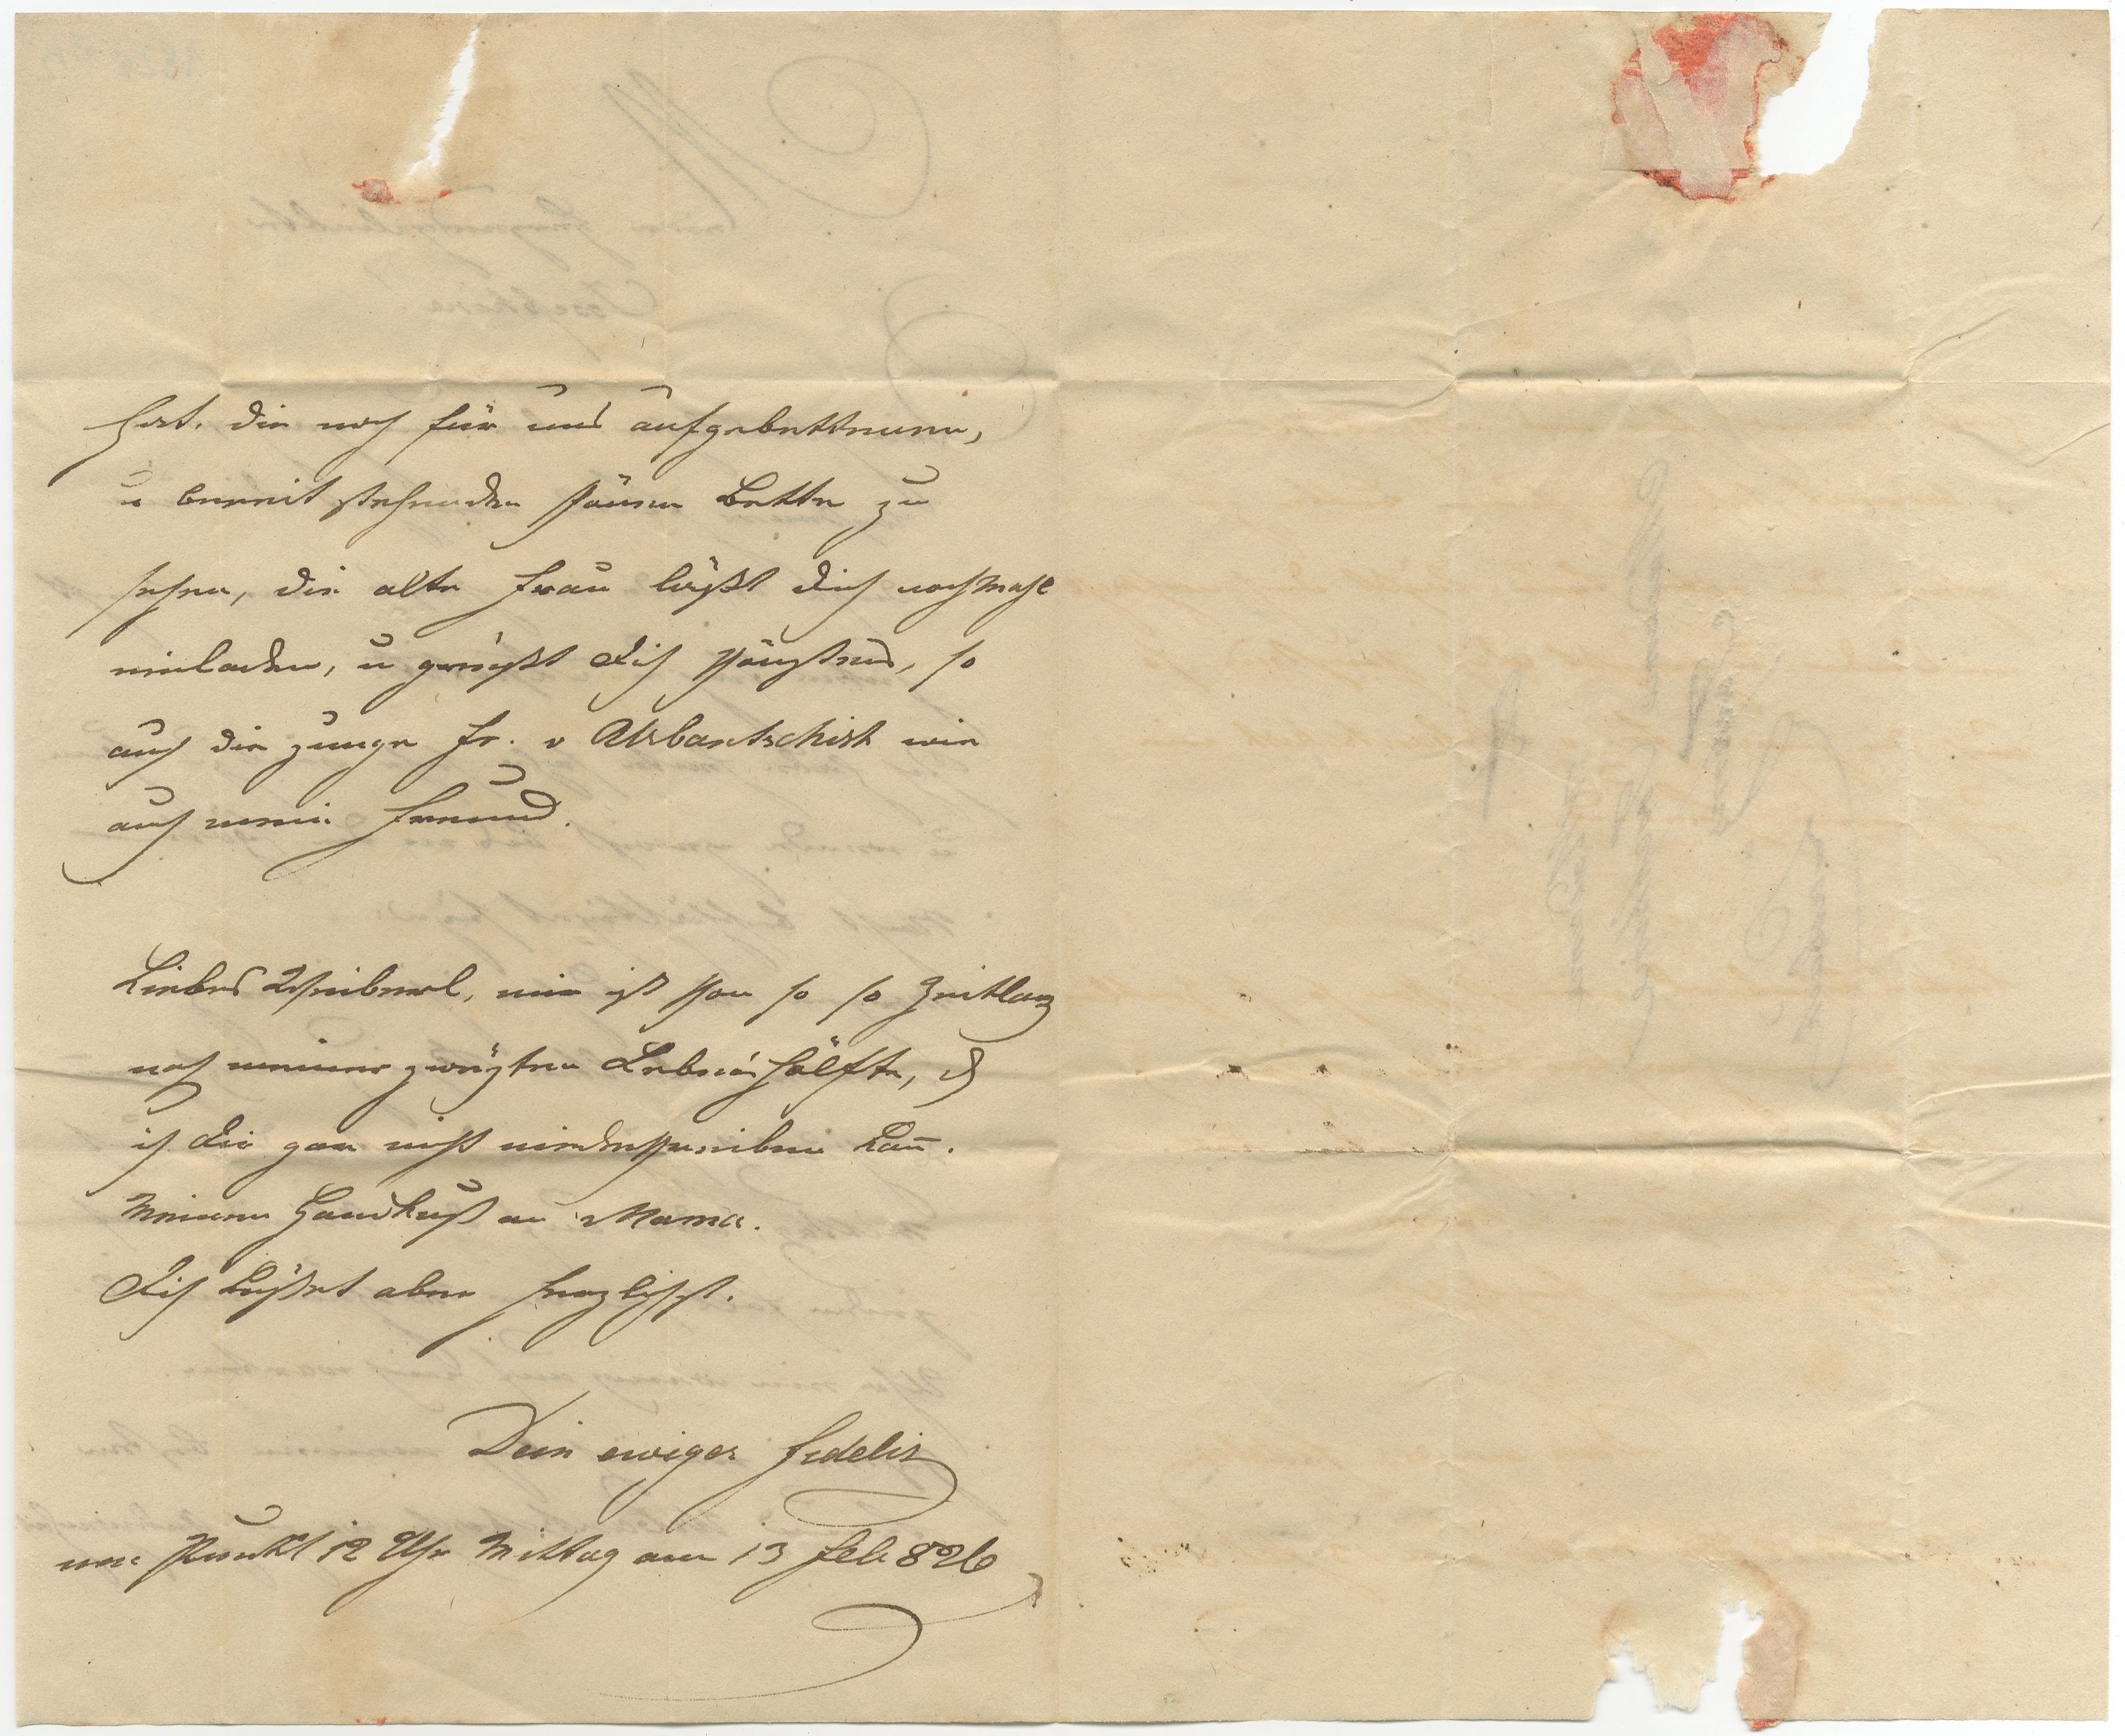 hast. die noch für uns aufgebettenen,
u bereit stehenden schönen Bette zu
sehen, die alte Frau läßt dich nochmahl
einladen, u grüßt dich schönstens, so
auch die junge Fr. v Urbantschitsch wie
auch mein Freund.
Liebes Weiberl, mir ist schon so so Zeitlang
nach meiner zweyten Lebenshälfte, dß
ich dir gar nicht niederschreiben kan̄.
Meinen Handkuß an Mama.
Dich küßet aber herzlichst.
Dein ewiger Fidelis
um Punkt 12 Uhr Mittag am 13 Feb 826